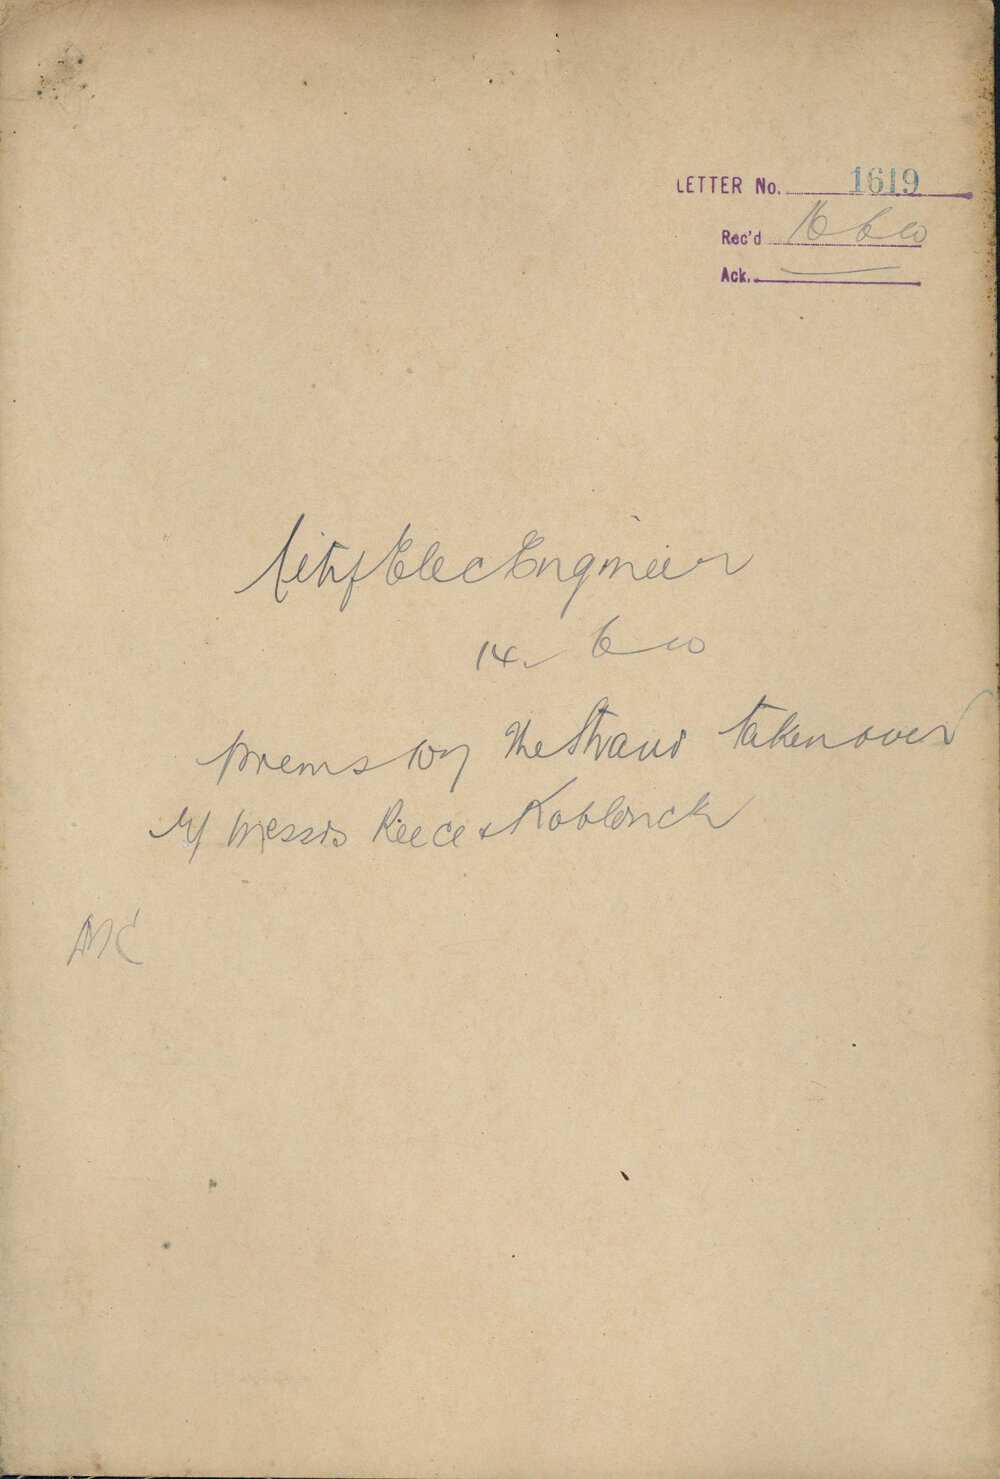 LETTER No. 1619
Rec'd 16 6 10
Ack.
City Elec Engineer
14. 6 10
prems The Strand taken over
by Messrs Reece & Koblonck